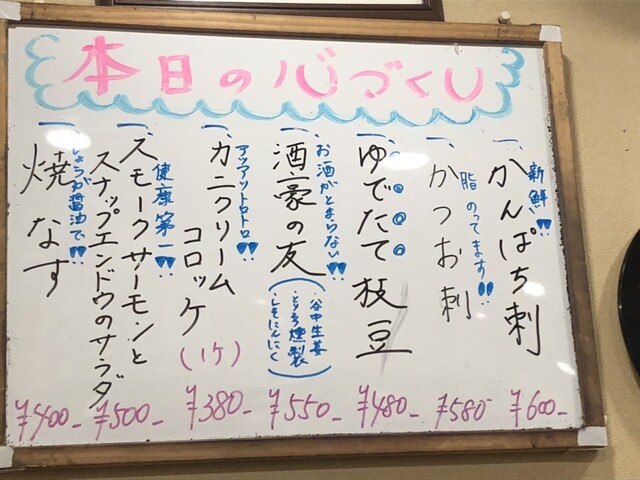 本日の心づくし
一、かんぱち刺
新鮮!!
¥600-
一、かつお刺
脂のってます!!
¥580-
一、ゆでたて枝豆
¥480-
一、酒豪の友
お酒がとまらない!!
(谷中生姜
・とりささ燻製
・しそにんにく)
¥550-
一、カニクリーム
コロッケ
(1ケ)
アツアツトロトロ!!
¥380-
一、スモークサーモンと
スナップエンドウのサラダ
健康第一!!
¥500-
一、焼なす
しょうが醤油で!!
¥400-